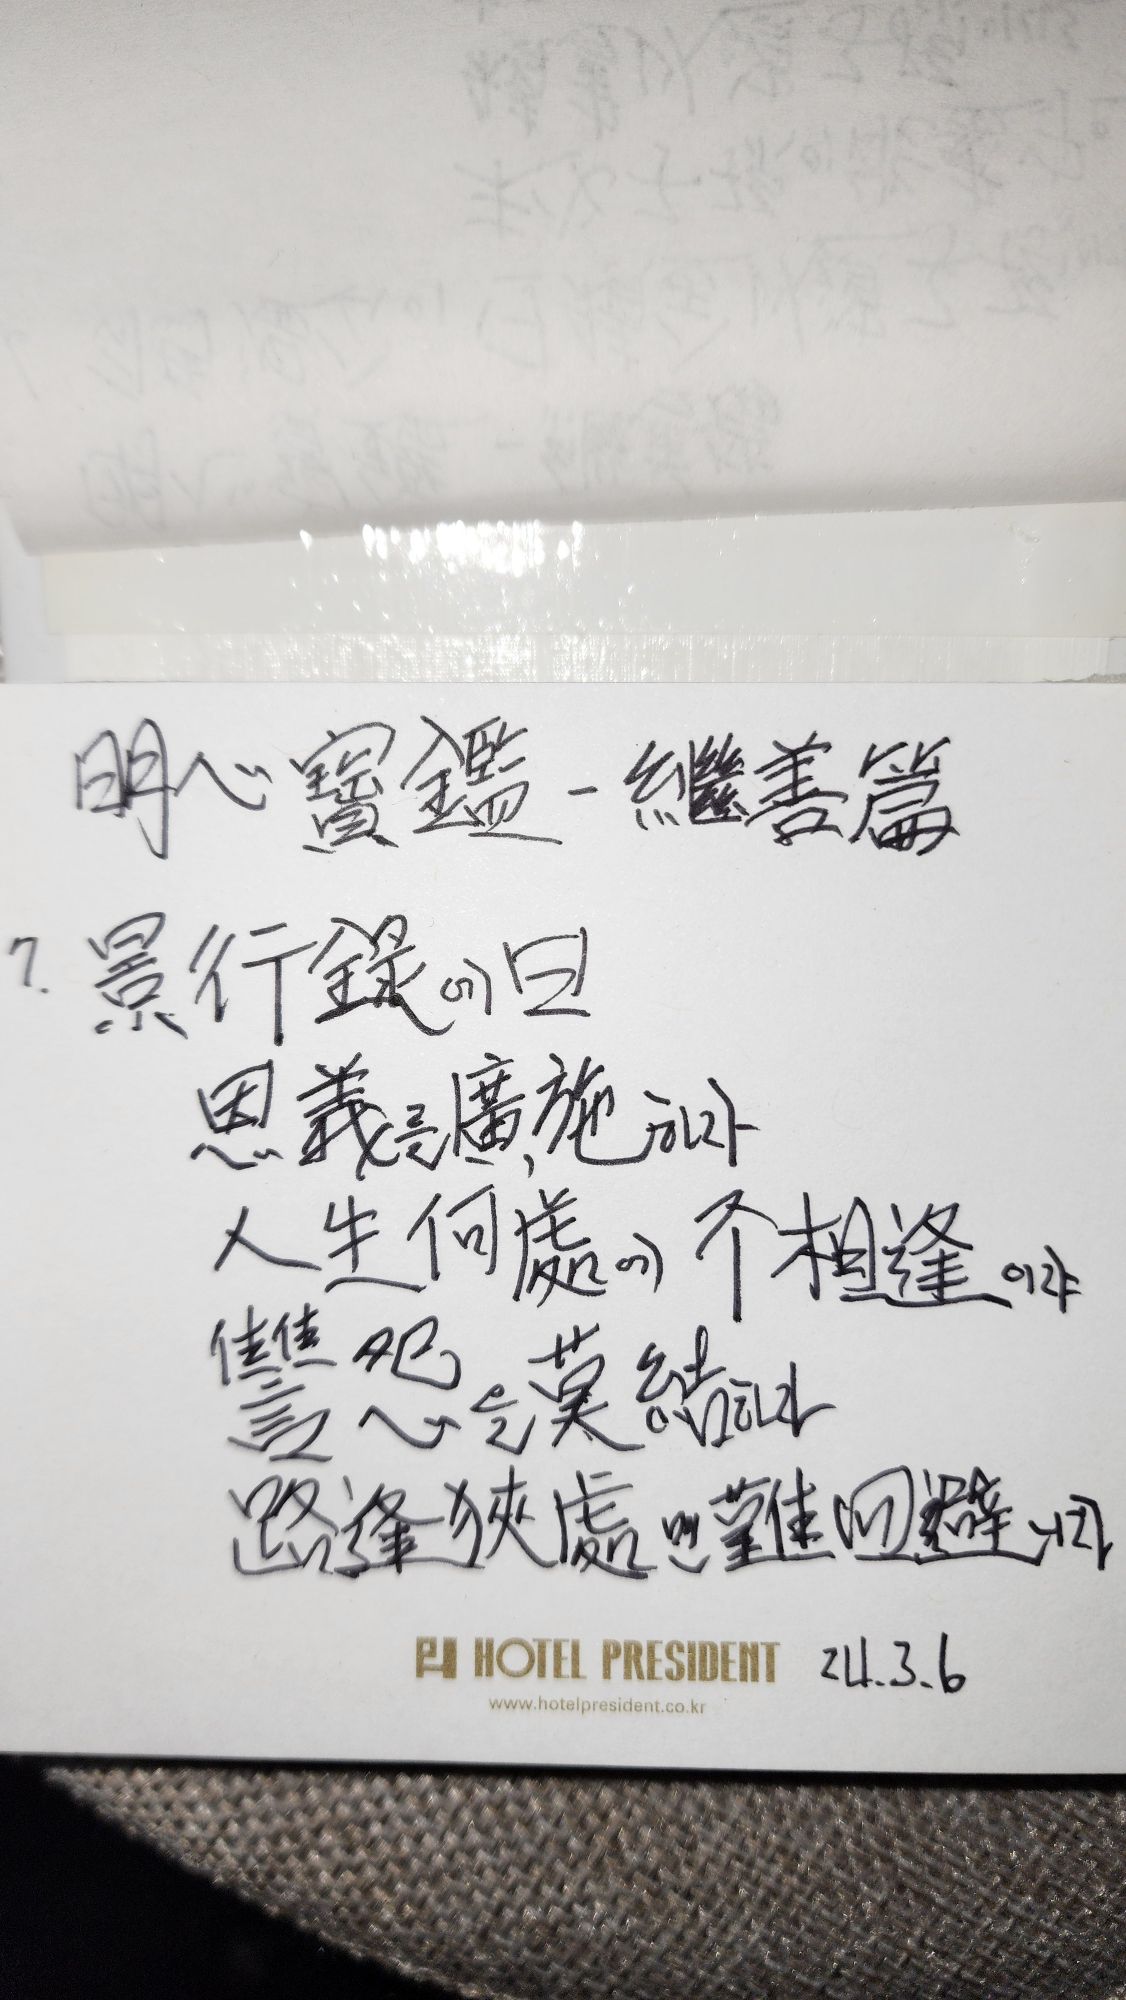 明心寶鑑-繼善篇
7. 景行錄에 曰
恩義를 廣施하라
人生何處에 不相逢이랴
讐怨을 莫結하라
路逢狹處면 難回避니라
HOTEL PRESIDENT 24.3.6
www.hotelpresident.co.kr